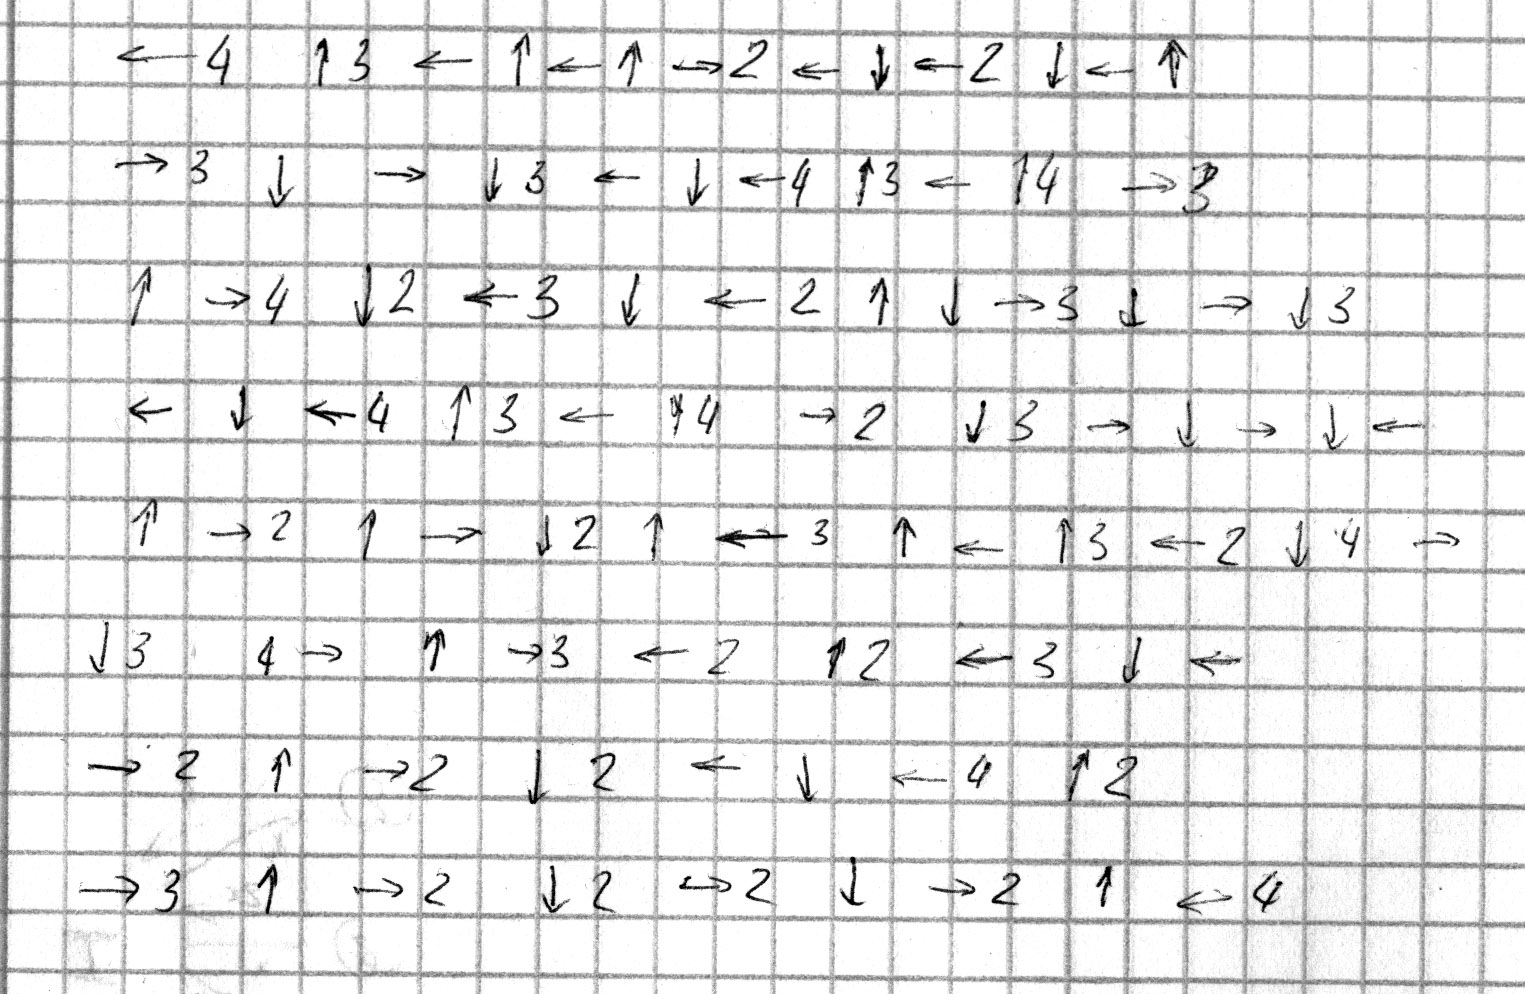 ←4 ↑3 ← ↑ ← ↑ →2 ← ↓ ←2 ↓ ← ↑
→3 ↓ → ↓3 ← ↓ ←4 ↑3 ← ↑4 →3
↑ →4 ↓2 ←3 ↓ ←2 ↑ ↓ →3 ↓ → ↓3
← ↓ ←4 ↑3 ← 4 →2 ↓3 → ↓ → ↓ ←
↑ →2 ↑ → ↓2 ↑ ←3 ↑ ← ↑3 ←2 ↓4 →
↓3 4→ ↑ →3 ←2 ↑2 ←3 ↓ ←
→2 ↑ →2 ↓2 ← ↓ ←4 ↑2
→3 ↑ →2 ↓2 →2 ↓ →2 ↑ ←4